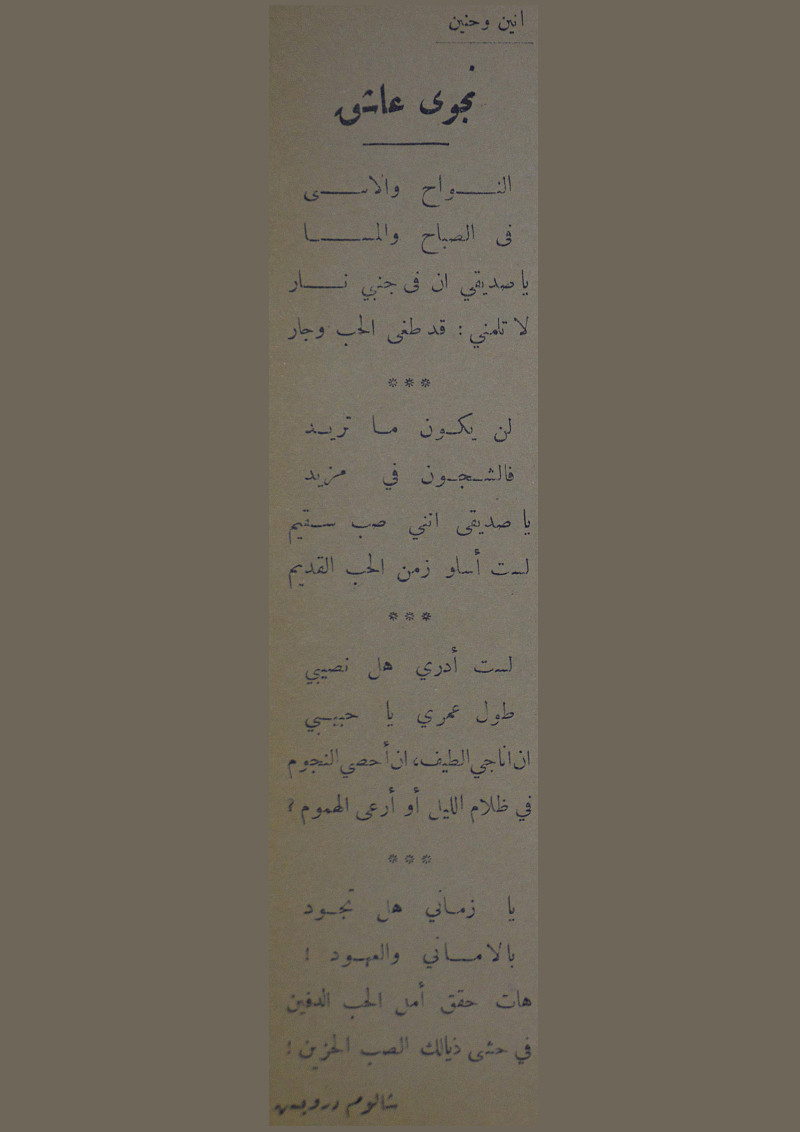 انين وحنين
نجوى عاشق
النواح والاسى
فى الصباح والمسا
يا صديقي ان فى جنبي نار
لا تلمني : قد طغى الحب وجار
***
لن يكون ما تريد
فالشجون في مزيد
يا صديقى انني صب سقيم
لست أسلو زمن الحب القديم
***
لست أدري هل نصيبي
طول عمري يا حبيبي
ان اناجي الطيف، ان أحصي النجوم
في ظلام الليل أو أرعى الهموم ؟
***
يا زماني هل تجود
بالاماني والعهود !
هات حقق أمل الحب الدفين
في حشى ذيالك الصب الحزين !
شالوم درويش